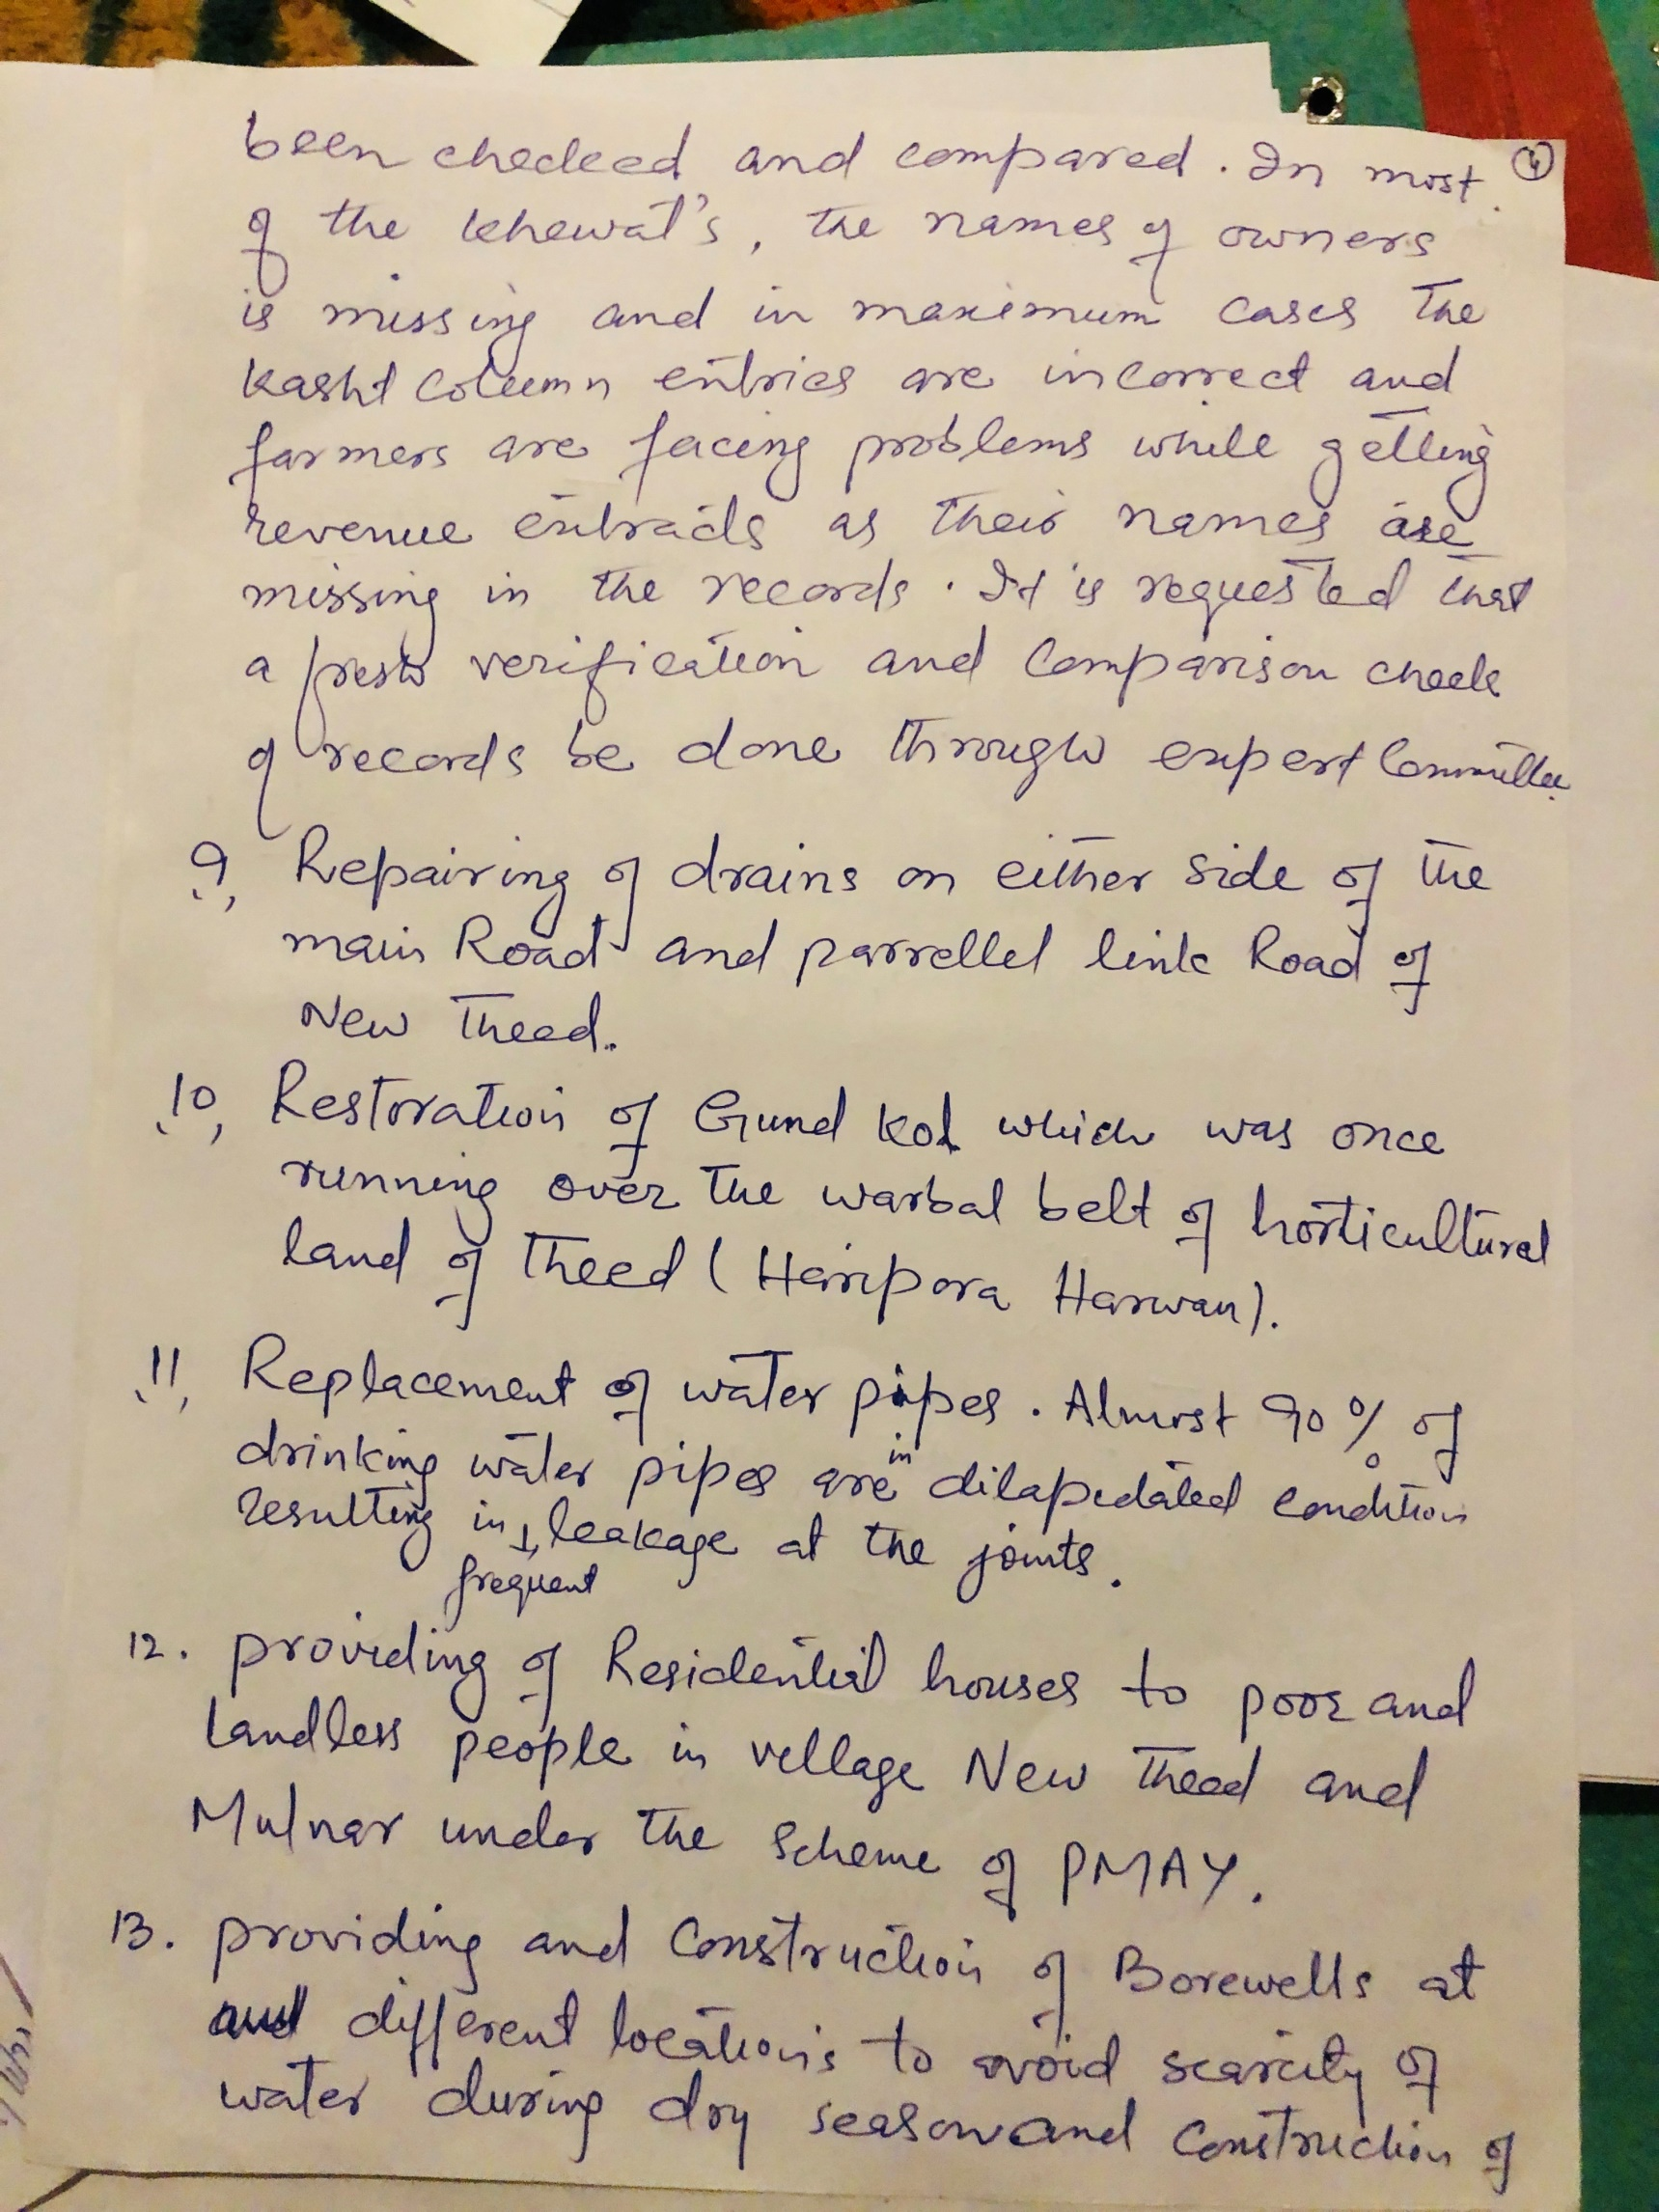 ④
been checked and compared. In most
of the khewat's, the names of owners
is missing and in maximum cases the
Kasht Column entries are incorrect and
farmers are facing problems while getting
revenue extracts as their names are
missing in the records. It is requested that
a fresh verification and Comparison check
of records be done through expert Committee.
9, Repairing of drains on either side of the
main Road and parrellel link Road of
New Theed.
10, Restoration of Gund Kol which was once
running over the warbal belt of horticultural
land of Theed (Haripora Harwan).
11, Replacement of water pipes. Almost 90% of
drinking water pipes are in dilapedated condition
resulting in frequent leakage at the joints.
12. providing of Residential houses to poor and
Landless people in village New Theed and
Mulnar under the Scheme of PMAY.
13. providing and Construction of Borewells at
and different locations to avoid scarcity of
water during dry season and Construction of